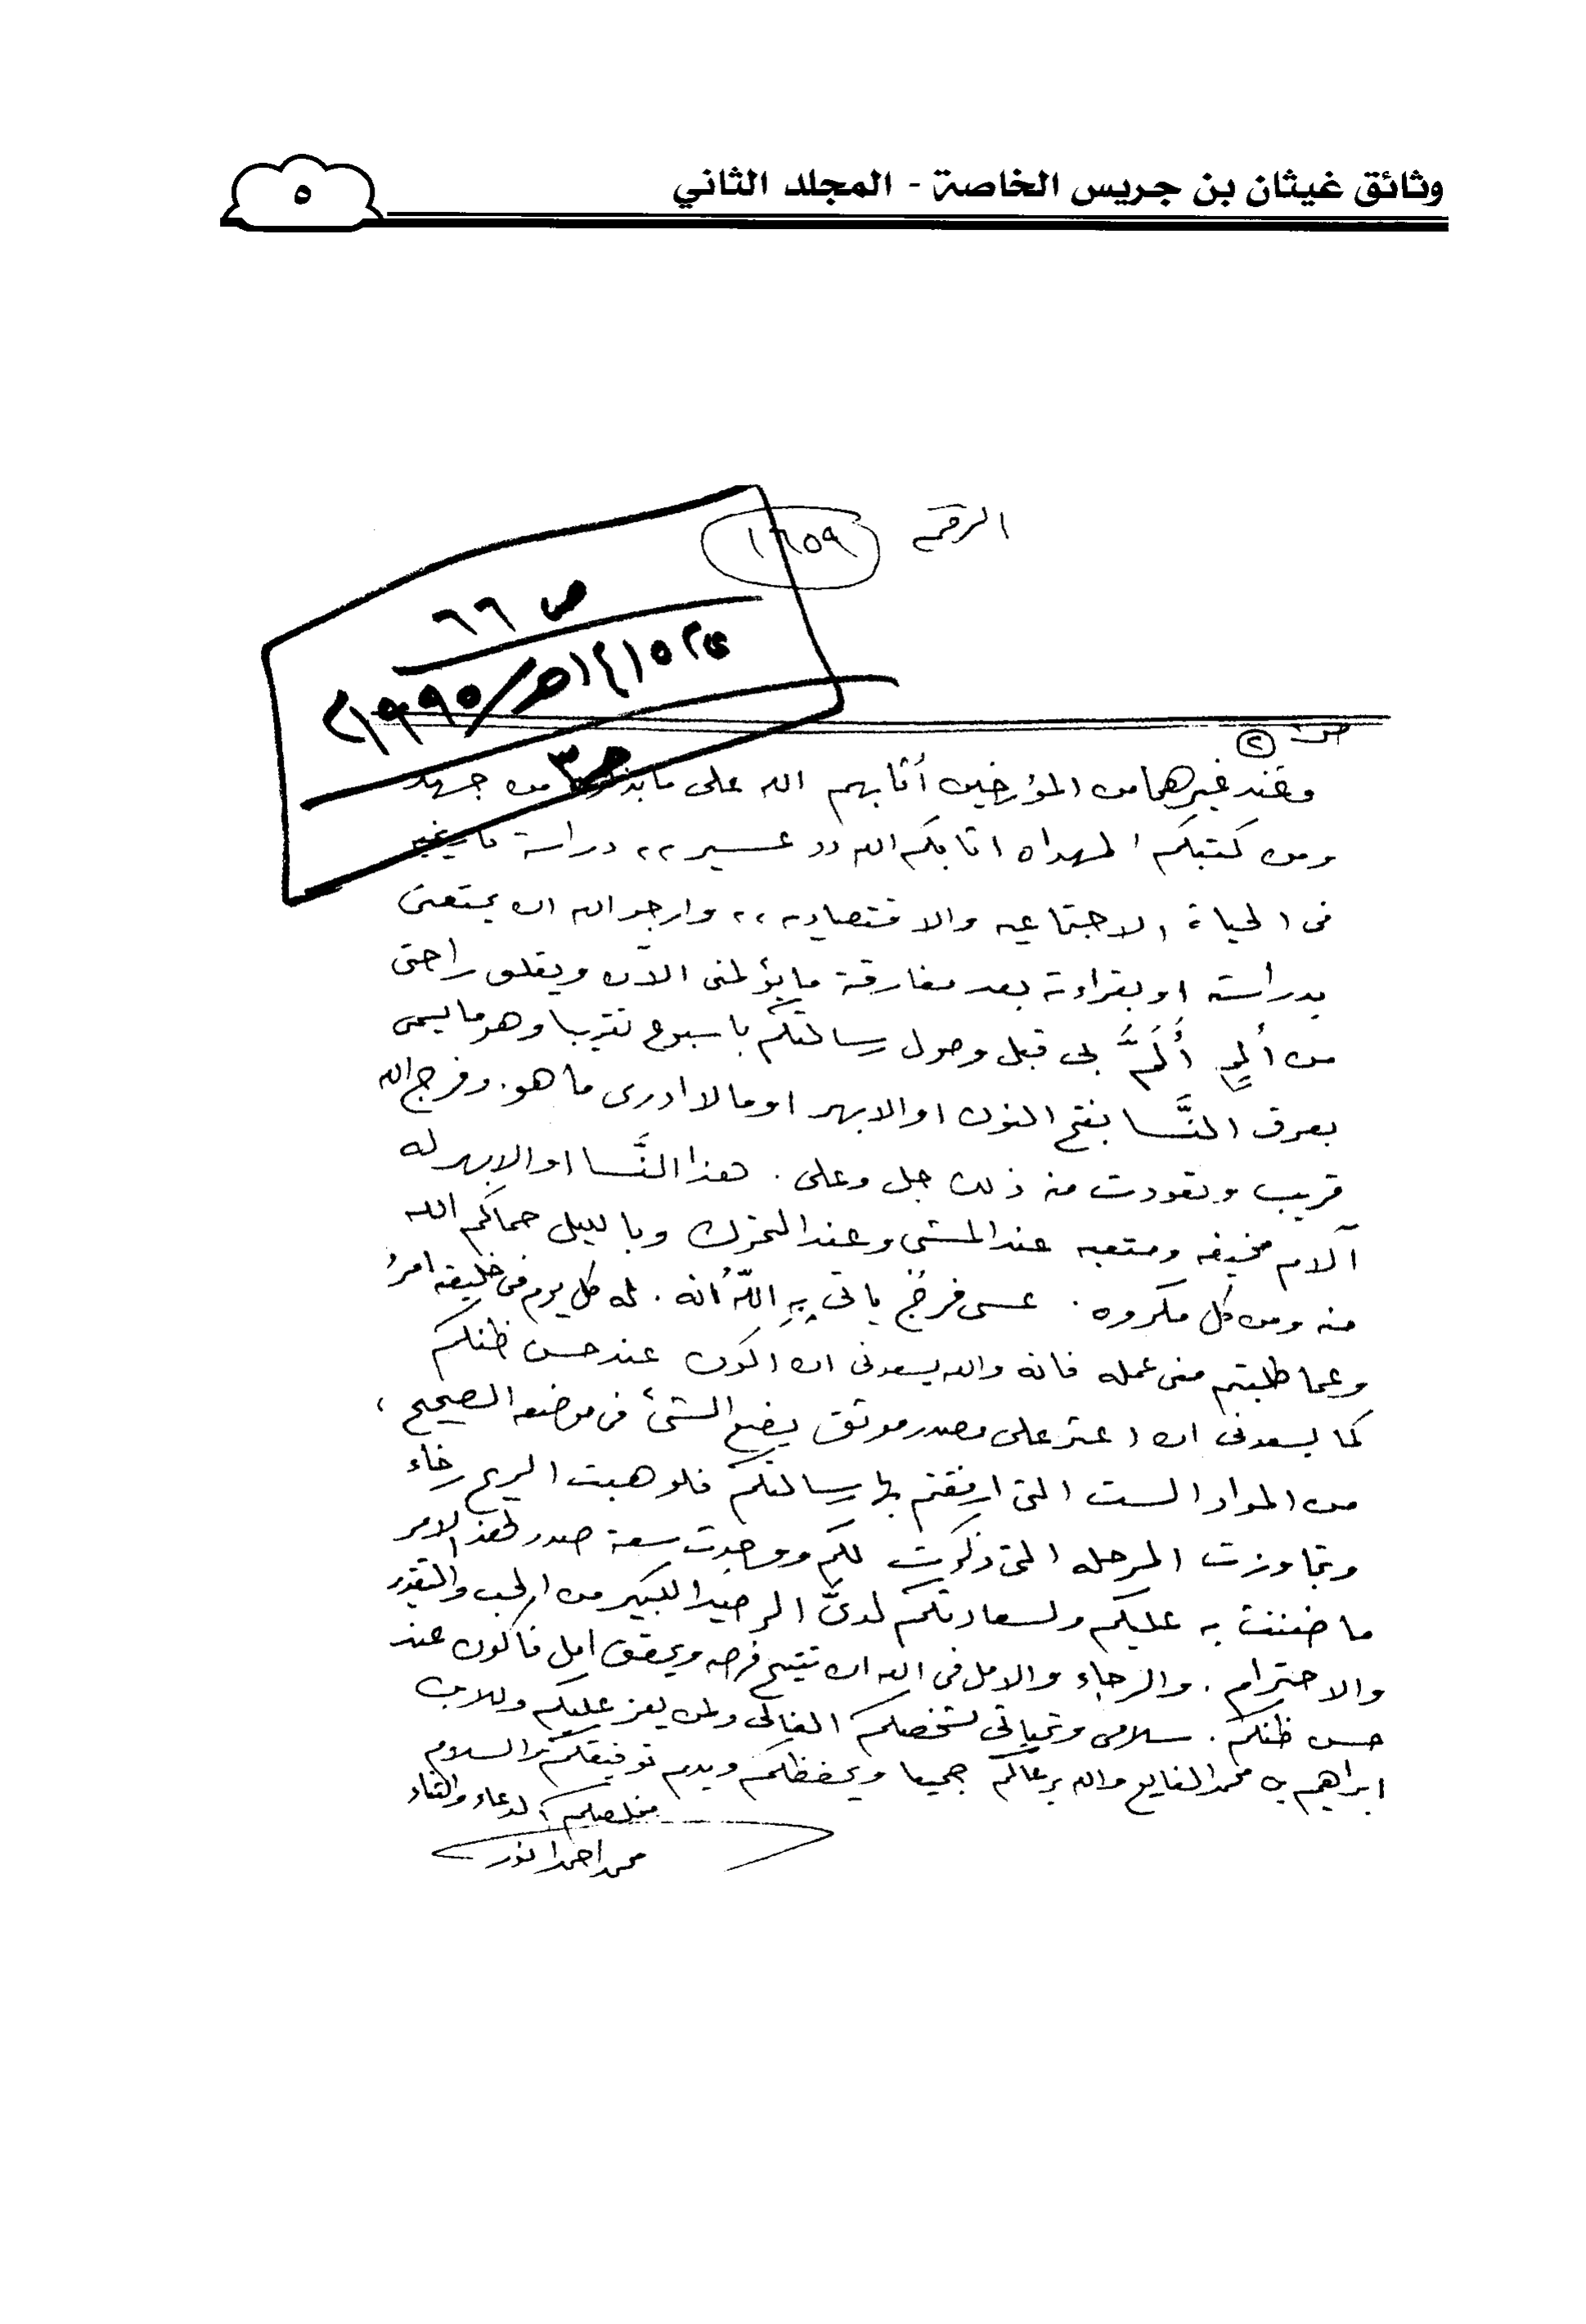 وثائق غيثان بن جريس الخاصة - المجلد الثاني
٥
الرقم ١٦٥٩
ص ٦٦
١٤١٥هـ/١٩٩٥م
ص٣
ص ٢
وعند غيرهما من المؤرخين أثابهم الله على ما من جهد
ومن كتبكم المهداه اثابكم الله ״ عسير ״ دراسة تاريخية
فى الحياة الاجتماعيه والاقتصاديه ״ وارجو الله ان يمتعنى
بدراسته او بقراءته بعد مفارقة ما يؤلمنى الآن ويقلق راحتى
من ألمٍ أَلَمَّ بى قبل وصول رسالتكم باسبوع تقريبا وهو ما يسمى
بعرق النَّسا بفتح النون او الابهر او ما لا ادرى ما هو. وفرج الله
قريب وتعودت منه ذلك جل وعلى . هذا النَّسا او الابهر له
آلام مخيفه ومتعبه عند المشى وعند التحرك وبالليل حماكم الله
منه ومن كل مكروه . عسى فرجٌ ياتى بِهِ اللّهُ انه . له كل يوم فى خليقته امرُ
وعما طلبتم منى عمله فانه والله يسعدنى ان اكون عند حسن ظنكم
كما يسعدنى ان اعثر على مصدر موثق يضع الشئ فى موضعه الصحيح ،
من المواد الست التى ارفقتم بها رسالتكم فلو هبت الريح رخاء
وتجاوزت المرحله التى ذكرت لكم ووجدت سعة صدر لهذ الامر
ما ضننت به عليكم ولسعادتكم لدىَّ الرصيد الكبير من الحب والتقدير
والاحترام . والرجاء والامل فى الله ان تتيح فرصه ويحقق امل فاكون عند
حسن ظنكم . سلامى وتحياتى لشخصكم الغالى ولمن يعز عليكم وللاب
ابراهيم بن محمد الفايع والله يرعاكم جميعا ويحفظكم ويديم توفيقكم والسلام
مخلصكم الدعاء والثناء
محمد احمد انور